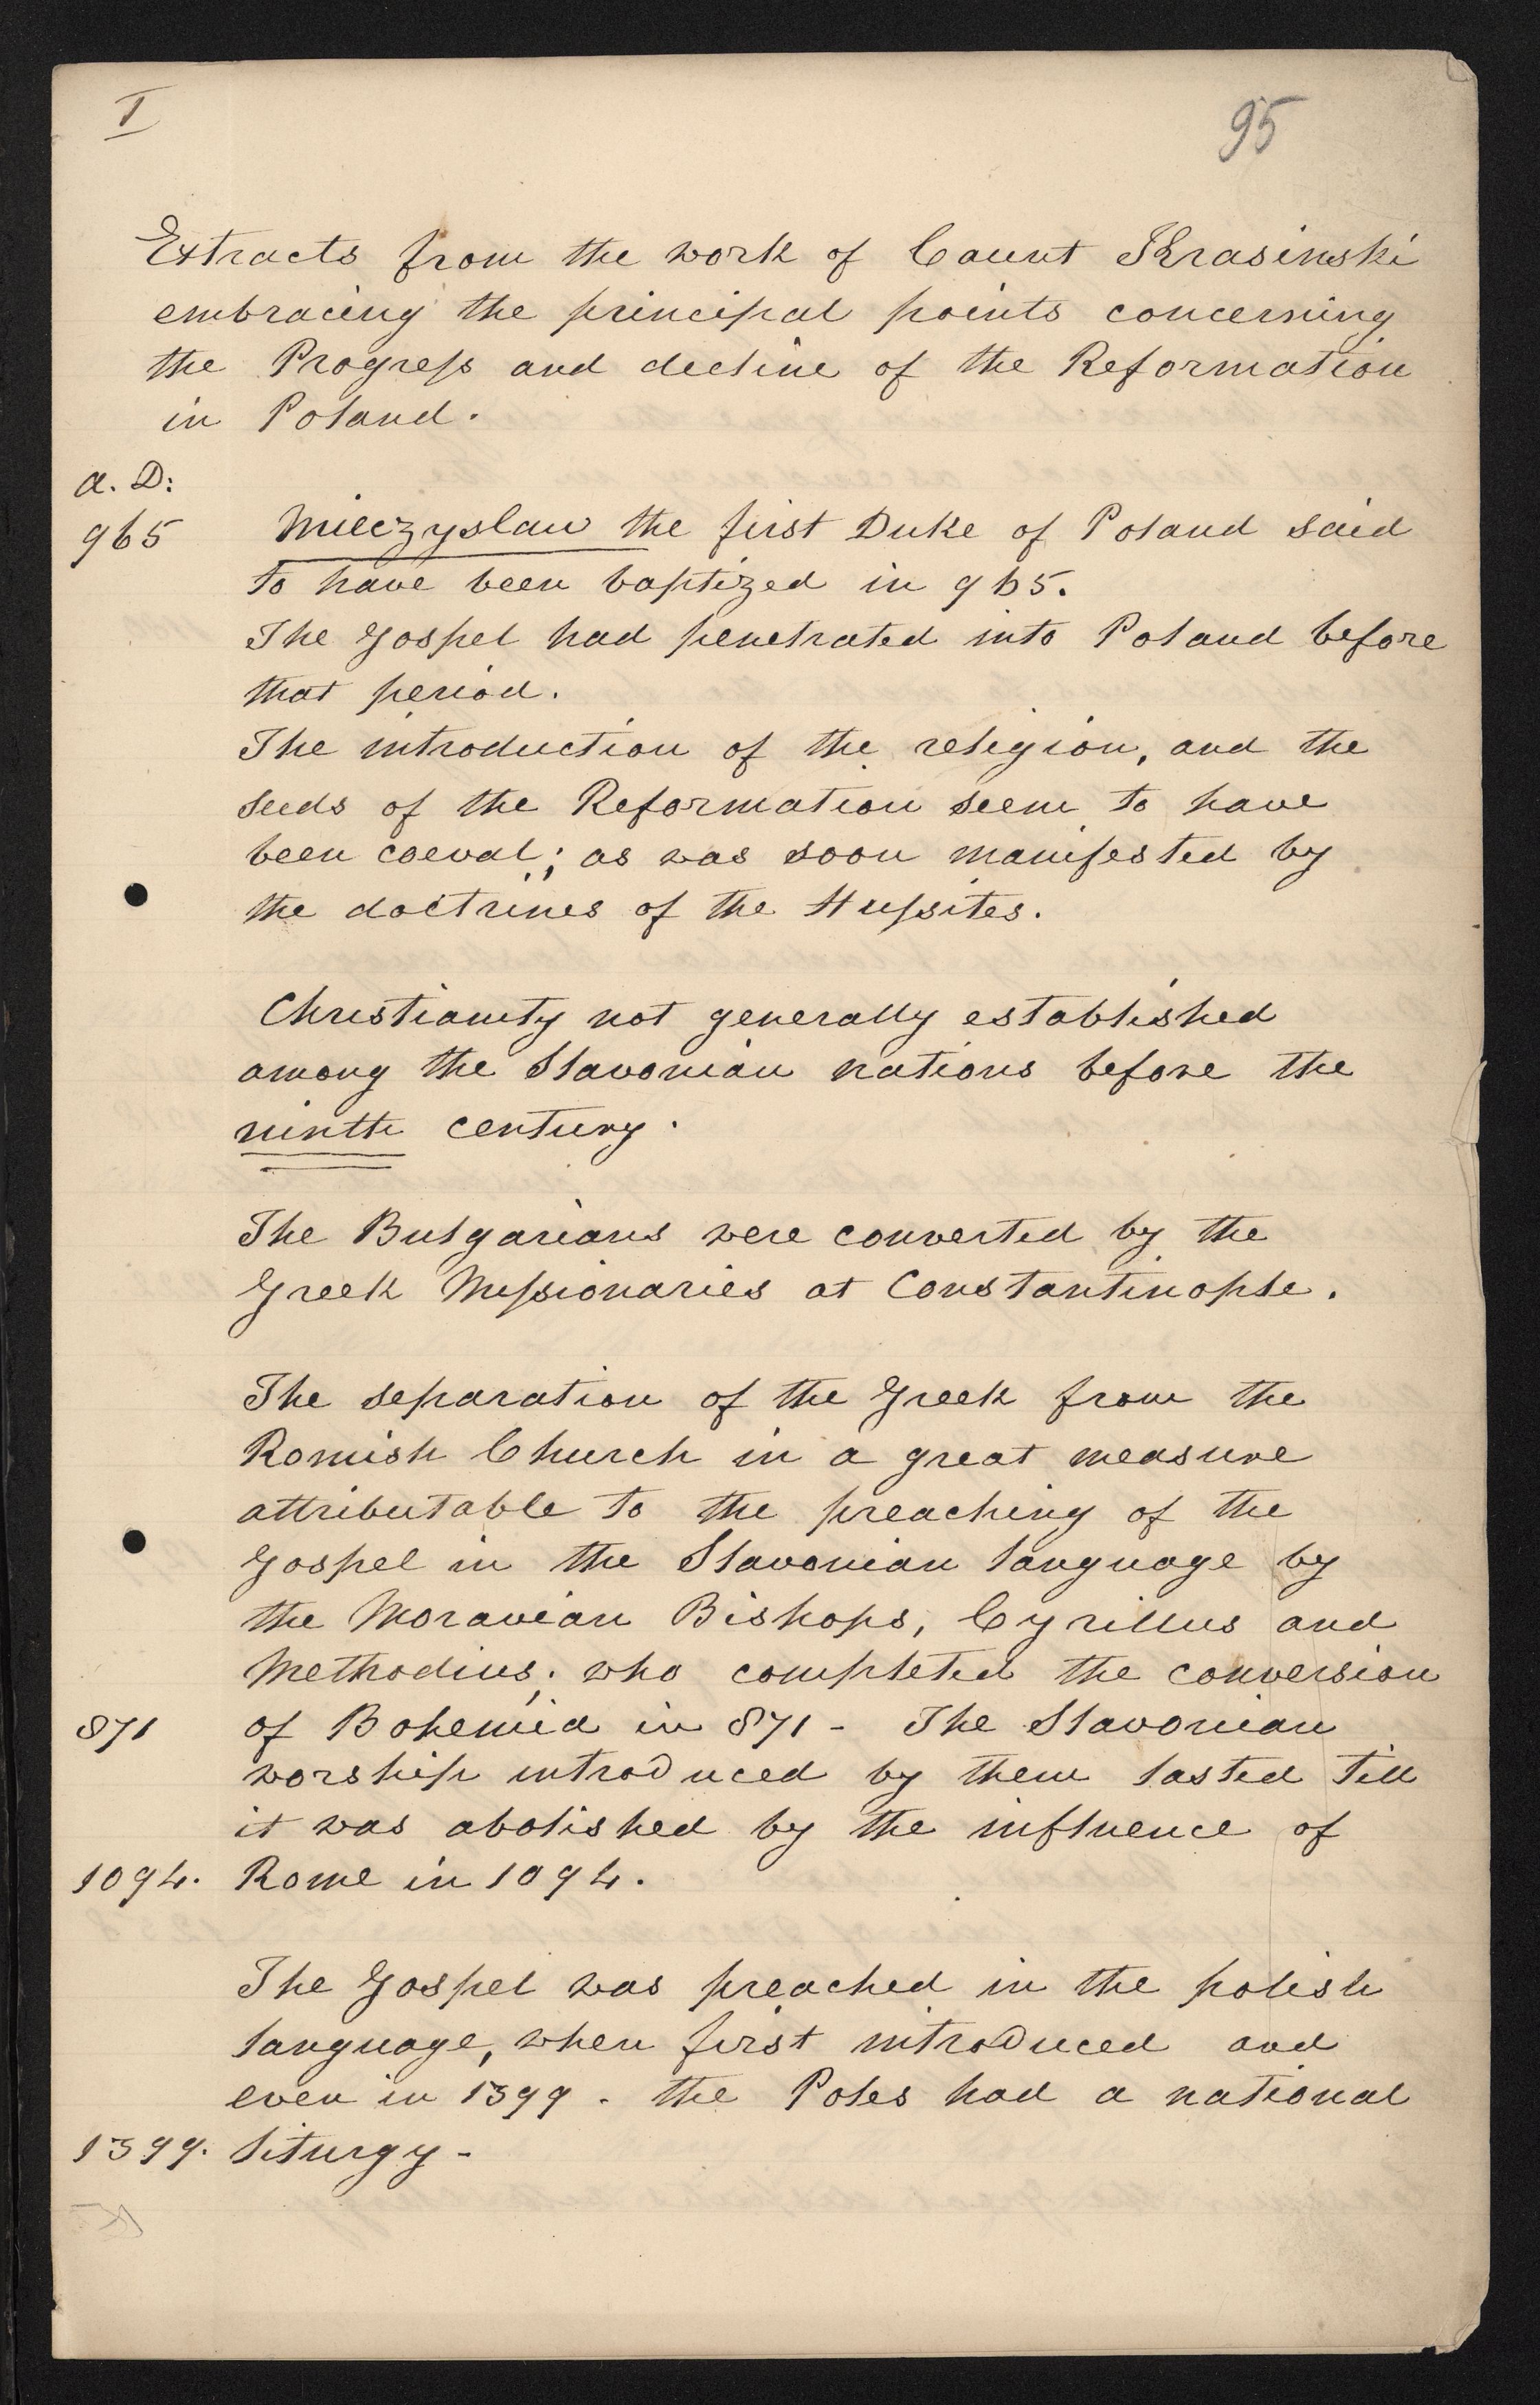 I
95
Extracts from the work of Count Krasinski
embracing the principal points concerning
the Progress and decline of the Reformation
in Poland.
a. D:
965 Mieczyslaw the first Duke of Poland said
to have been baptized in 965.
The Gospel had penetrated into Poland before
that period.
The introduction of the religion, and the
seeds of the Reformation seem to have
been coeval; as was soon manifested by
the doctrines of the Hussites.
Christianity not generally established
among the Slavonian nations before the
ninth century.
The Bulgarians were converted by the
Greek Missionaries at Constantinople.
The separation of the Greek from the
Romish Church in a great measure
attributable to the preaching of the
Gospel in the Slavonian language by
the Moravian Bishops, Cyrillus and
Methodius; who completed the conversion
871 of Bohemia in 871 - The Slavonian
worship introduced by them lasted till
it was abolished by the influence of
1094. Rome in 1094.
The Gospel was preached in the polish
language, when first introduced and
even in 1399 - the Poles had a national
1399. liturgy -